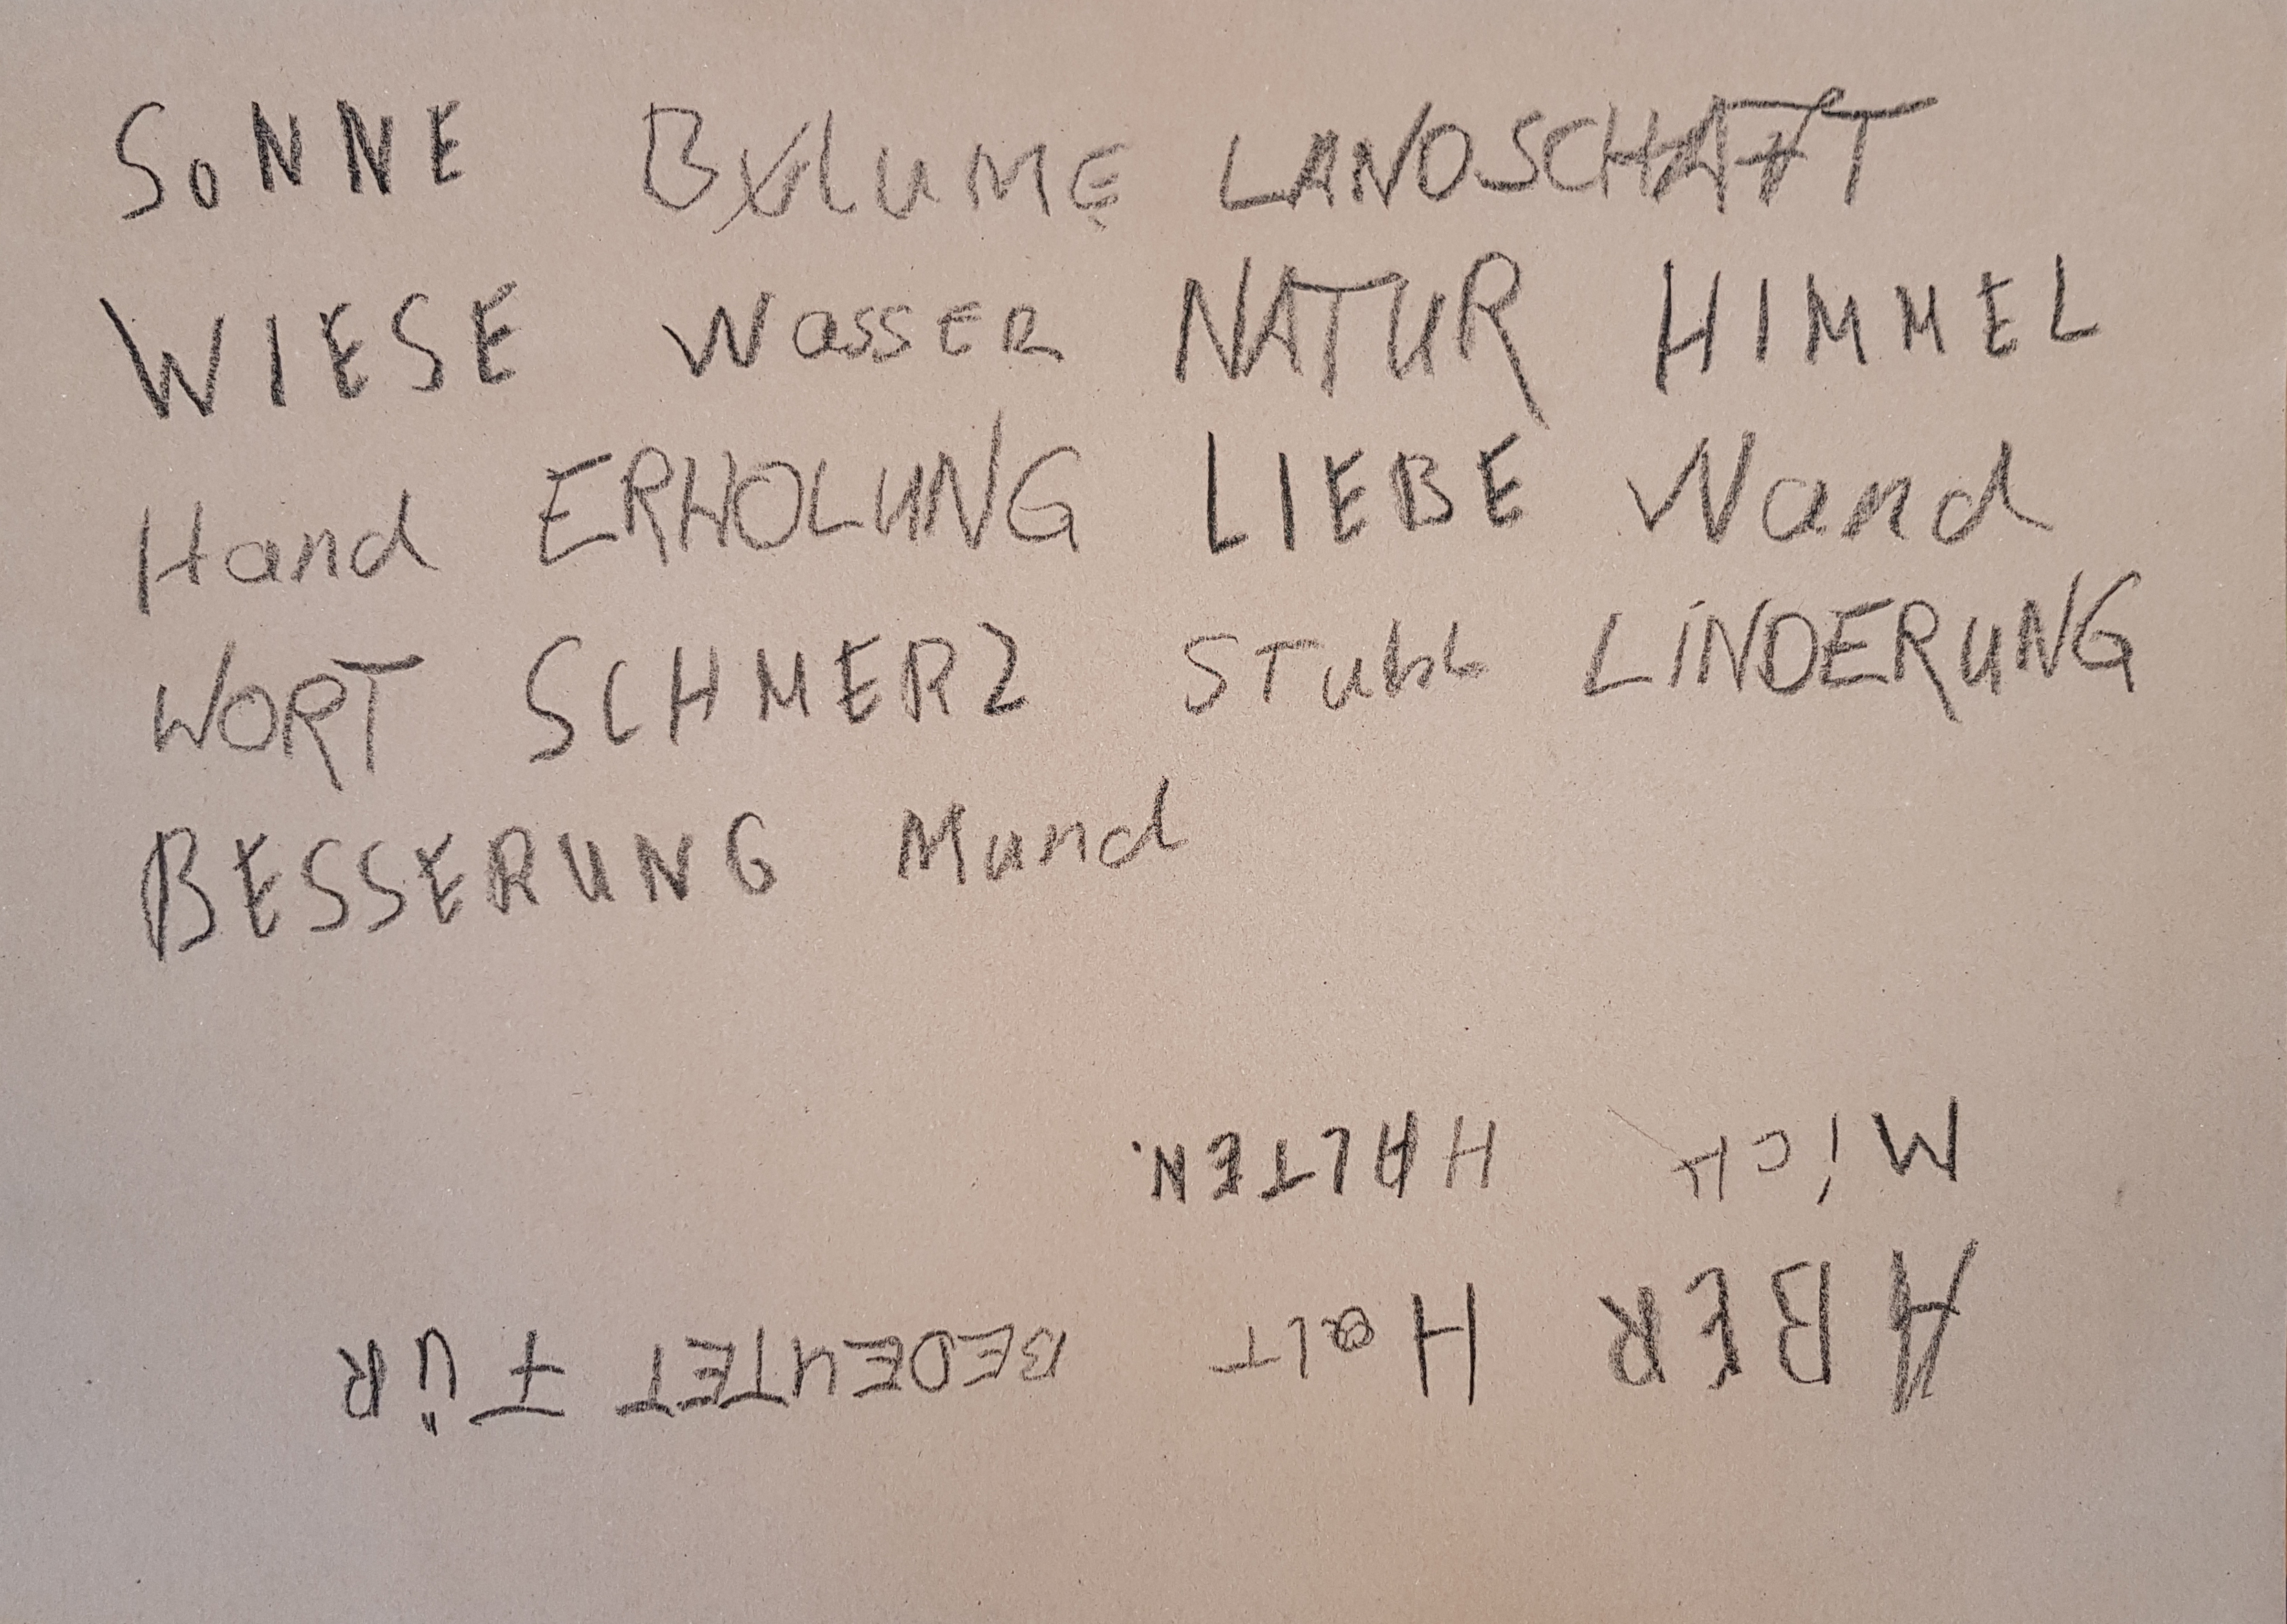 SONNE BÄUME LANDSCHAFT
WIESE Wasser NATUR HIMMEL
Hand ERHOLUNG LIEBE Wand
WORT SCHMERZ STuhL LINDERUNG
BESSERUNG Mund
ABER HaLT BEDEUTET FÜR
MiCH HALTEN.